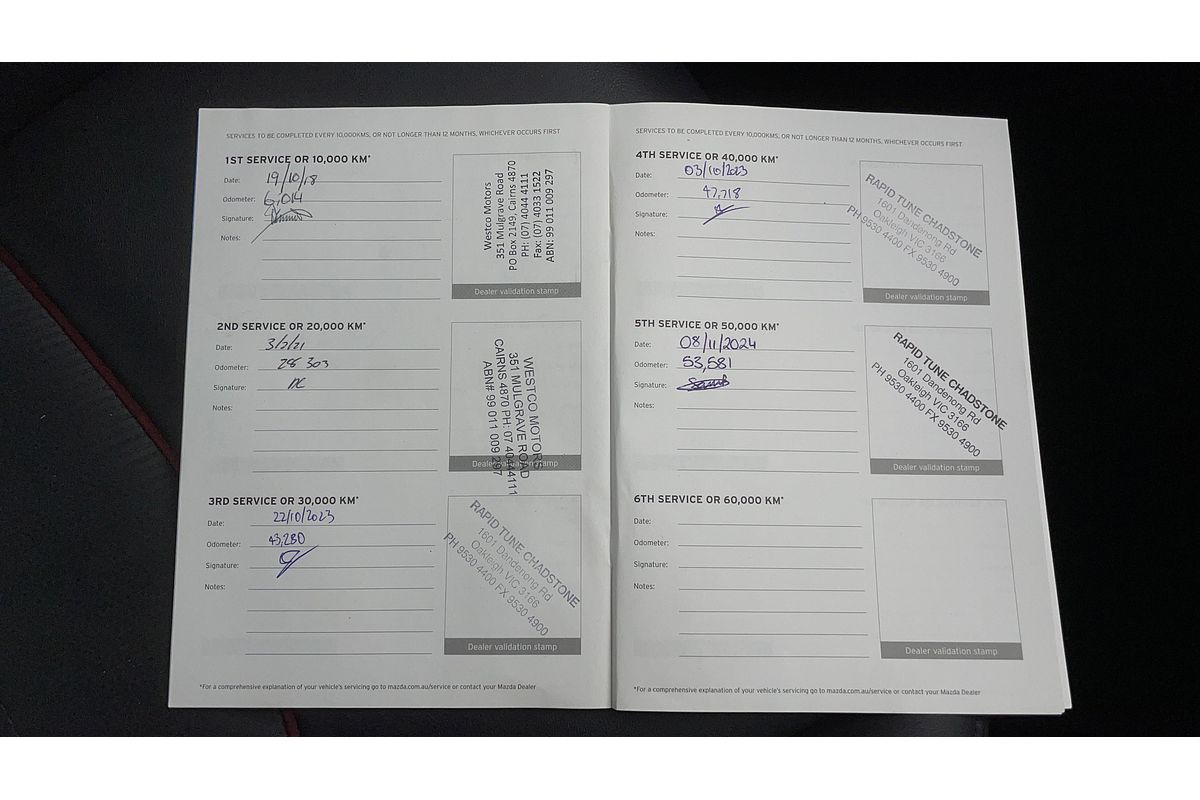 SERVICES TO BE COMPLETED EVERY 10,000KMS, OR NOT LONGER THAN 12 MONTHS, WHICHEVER OCCURS FIRST
1ST SERVICE OR 10,000 KM*
Date: 19/10/18
Odometer: 6,014
Signature:
Notes:
Westco Motors
351 Mulgrave Road
PO Box 2149, Cairns 4870
PH: (07) 4044 4111
Fax: (07) 4033 1522
ABN: 99 011 009 297
Dealer validation stamp
2ND SERVICE OR 20,000 KM*
Date: 3/2/21
Odometer: 28 303
Signature:
Notes:
WESTCO MOTORS
351 MULGRAVE ROAD
CAIRNS 4870 PH: 07 40444111
ABN# 99 011 009 297
Dealer validation stamp
3RD SERVICE OR 30,000 KM*
Date: 22/10/2023
Odometer: 43,280
Signature:
Notes:
RAPID TUNE CHADSTONE
1601 Dandenong Rd
Oakleigh VIC 3166
PH 9530 4400 FX 9530 4900
Dealer validation stamp
*For a comprehensive explanation of your vehicle's servicing go to mazda.com.au/service or contact your Mazda Dealer
SERVICES TO BE COMPLETED EVERY 10,000KMS, OR NOT LONGER THAN 12 MONTHS, WHICHEVER OCCURS FIRST
4TH SERVICE OR 40,000 KM*
Date: 03/10/2023
Odometer: 47,718
Signature:
Notes:
RAPID TUNE CHADSTONE
1601 Dandenong Rd
Oakleigh VIC 3166
PH 9530 4400 FX 9530 4900
Dealer validation stamp
5TH SERVICE OR 50,000 KM*
Date: 08/11/2024
Odometer: 53,581
Signature:
Notes:
RAPID TUNE CHADSTONE
1601 Dandenong Rd
Oakleigh VIC 3166
PH 9530 4400 FX 9530 4900
Dealer validation stamp
6TH SERVICE OR 60,000 KM*
Date:
Odometer:
Signature:
Notes:
Dealer validation stamp
*For a comprehensive explanation of your vehicle's servicing go to mazda.com.au/service or contact your Mazda Dealer